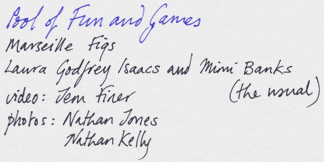 Pool of Fun and Games
Marseille Figs
Laura Godfrey Isaacs and Mimi Banks
video: Jem Finer (the usual)
photos: Nathan Jones
Nathan Kelly